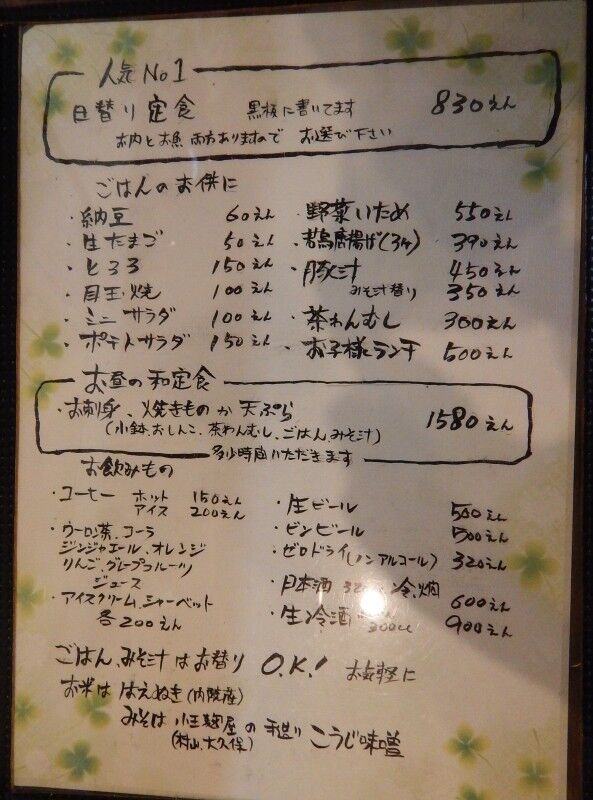 人気 No1
日替り定食 黒板に書いてます 830えん
お肉とお魚 両方ありますので お選び下さい
ごはんのお供に
・納豆 60えん
・生たまご 50えん
・とろろ 150えん
・目玉焼 100えん
・ミニサラダ 100えん
・ポテトサラダ 150えん
・野菜いため 550えん
・若鳥唐揚げ(3ヶ) 390えん
・豚汁 450えん
みそ汁替り 350えん
・茶わんむし 300えん
・お子様ランチ 500えん
お昼の和定食
・お刺身、焼きものか天ぷら 1580えん
(小鉢、おしんこ、茶わんむし、ごはん、みそ汁)
多少時間いただきます
お飲みもの
・コーヒー ホット 150えん
アイス 200えん
・ウーロン茶、コーラ
ジンジャエール、オレンジ
りんご、グレープフルーツ
ジュース
・アイスクリーム、シャーベット
各200えん
・生ビール 500えん
・ビンビール 500えん
・ゼロドライ(ノンアルコール) 320えん
・日本酒 冷、燗 600えん
・生冷酒 300cc 900えん
ごはん、みそ汁はお替り O.K.! お気軽に
お米は はえぬき(内陸産)
みそは 小玉麹屋の手造り こうじ味噌
(村山、大久保)